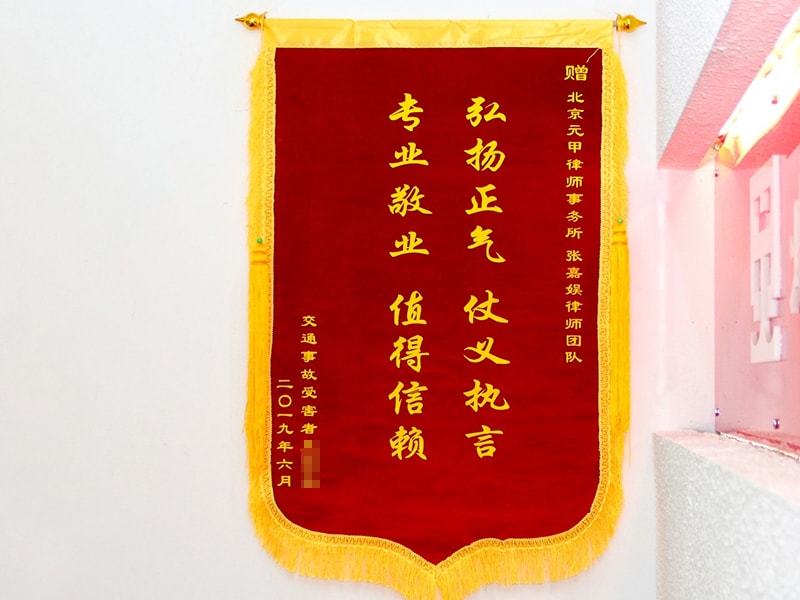 赠 北京元甲律师事务所 张嘉娱律师团队
弘扬正气 仗义执言
专业敬业 值得信赖
交通事故受害者
二〇一九年六月